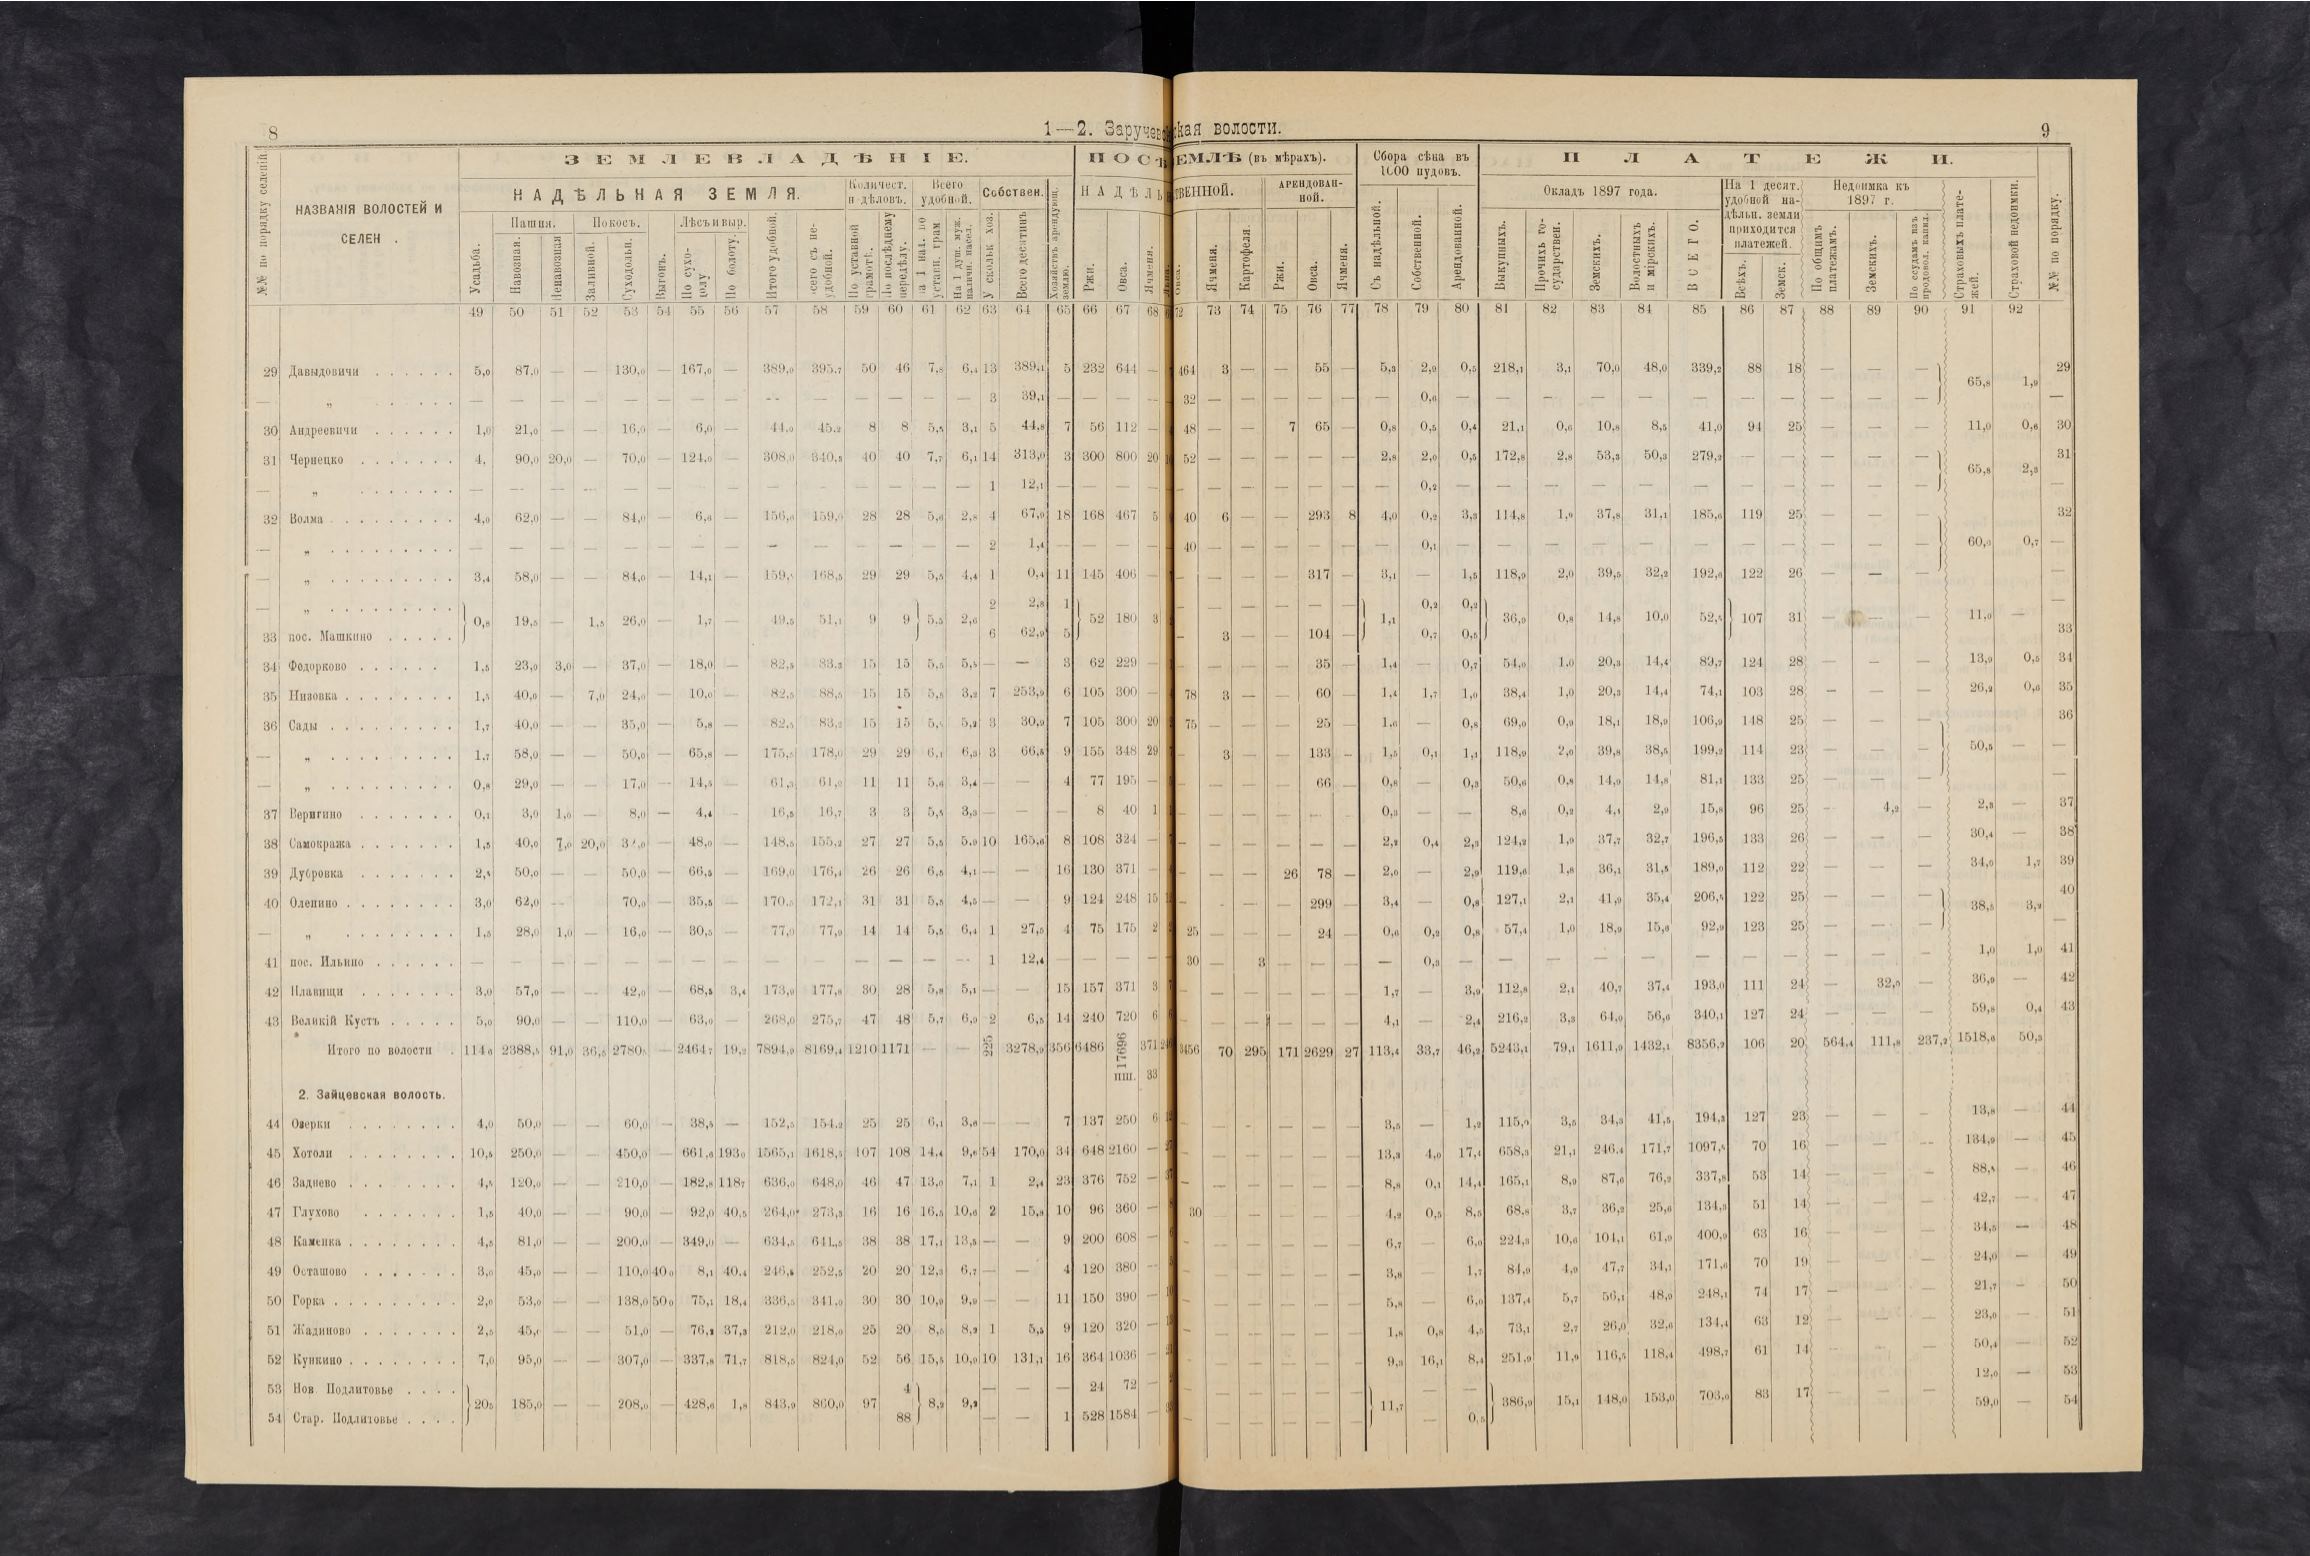 8
1—2. Заручевская волости.
9
№№ по порядку селеній
НАЗВАНІЯ ВОЛОСТЕЙ И
СЕЛЕН .
ЗЕМЛЕВЛАДѢНІЕ.
НАДѢЛЬНАЯ ЗЕМЛЯ.
Количест. н дѣловъ.
Всего удобной.
Собствен.
Пашня.
Покосъ.
Лѣсъ и выр.
Усадьба.
Навозная.
Ненавозная
Заливной.
Суходольн.
Выгонъ.
По болоту.
Итого удобной.
По уставной грамотѣ.
По послѣднему передѣлу.
У сколькъ хоз.
Всего десятинъ
Хозяйствъ арендующ. землю.
НАДѢЛЬ
Ржи.
Овса.
Ячменя.
ЕМЛѢ (въ мѣрахъ).
ТВЕННОЙ.
АРЕНДОВАН-
НОЙ.
Ячменя.
Картофеля.
Ржи.
Овса.
Ячменя.
Сбора сѣна въ
1000 пудовъ.
Съ надѣльной.
Собственной.
Арендованной.
ПЛАТЕЖИ.
Окладъ 1897 года.
Выкупныхъ.
Прочихъ го-
сударствен.
Земскихъ.
Волостныхъ
и мірскихъ.
ВСЕГО.
На 1 десят.
удобной на-
дѣльн. земли
приходится
платежей.
Всѣхъ.
Земск.
Недоимка къ
1897 г.
По общимъ
платежамъ.
Земскихъ.
По ссудамъ изъ
продовол. капил.
Страховыхъ плате-
жей.
Страховой недоимки.
№№ по порядку.
49 50 51 52 53 54 55 56 57 58 59 60 61 62 63 64 65 66 67 68 72 73 74 75 76 77 78 79 80 81 82 83 84 85 86 87 88 89 90 91 92
29 Давыдовичи 5,0 87,0 — — 130,0 — 167,0 — 389,0 395,7 50 46 7,8 6,4 13 389,1 5 232 644 — 464 3 — — 55 — 5,3 2,9 0,5 218,1 3,1 70,0 48,0 339,2 88 18 — — — 65,8 1,9 29
— „ — — — — — — — — — — — — — — 3 39,1 — — — — 32 — — — — — — 0,6 — — — — — — — — — — — —
30 Андреевичи 1,0 21,0 — — 16,0 — 6,0 — 44,0 45,2 8 8 5,5 3,1 5 44,8 7 56 112 — 48 — — 7 65 — 0,8 0,5 0,4 21,1 0,6 10,8 8,5 41,0 94 25 — — — 11,0 0,6 30
31 Чернецко 4, 90,0 20,0 — 70,0 — 124,0 — 308,0 340,5 40 40 7,7 6,1 14 313,0 3 300 800 20 52 — — — — — 2,8 2,0 0,5 172,8 2,8 53,3 50,3 279,2 — — — — — 65,8 2,3 31
— „ — — — — — — — — — — — — — — 1 12,1 — — — — — — — — — — — 0,2 — — — — — — — — — — — —
32 Волма 4,0 62,0 — — 84,0 — 6,6 — 156,6 159,0 28 28 5,6 2,8 4 67,9 18 168 467 5 40 6 — — 293 8 4,0 0,2 3,3 114,8 1,9 37,8 31,1 185,6 119 25 — — — 32
— „ — — — — — — — — — — — — — — 2 1,4 — — — — 40 — — — — — — 0,1 — — — — — — — — — — — 60,0 0,7 —
— „ 3,4 58,0 — — 84,0 — 14,1 — 159, 168,5 29 29 5,5 4,4 1 0,4 11 145 406 — — — — — 317 — 3,1 — 1,5 118,9 2,0 39,5 32,2 192,6 122 26 — — —
— „ 2 2,8 1 — — — — — — 0,2 0,2 —
0,8 19,5 — 1,5 26,0 — 1,7 — 49,5 51,1 9 9 5,5 2,6 52 180 3 1,1 36,9 0,8 14,8 10,0 52,5 107 31 — — — 11,0 —
33 пос. Машкино 6 62,9 5 — 3 — — 104 — 0,7 0,5 33
34 Федорково 1,5 23,0 3,0 — 37,0 — 18,0 — 82,5 83,3 15 15 5,5 5,5 — — 3 62 229 — — — — — 35 — 1,4 — 0,7 54,0 1,0 20,3 14,4 89,7 124 28 — — — 13,9 0,5 34
35 Низовка 1,5 40,0 — 7,0 24,0 — 10,0 — 82,5 88,5 15 15 5,5 3,2 7 253,9 6 105 300 — 78 3 — — 60 — 1,4 1,7 1,0 38,4 1,0 20,3 14,4 74,1 103 28 — — — 26,2 0,6 35
36 Сады 1,7 40,0 — — 35,0 — 5,8 — 82,5 83,2 15 15 5, 5,2 3 30,9 7 105 300 20 75 — — — 25 — 1,6 — 0,8 69,0 0,9 18,1 18,9 106,9 148 25 — — — 36
— „ 1,7 58,0 — — 50,0 — 65,8 — 175,5 178,0 29 29 6,1 6,3 3 66,5 9 155 348 29 — 3 — — 133 — 1,5 0,1 1,1 118,9 2,0 39,8 38,5 199,2 114 23 — — — 50,5 — —
— „ 0,8 29,0 — — 17,0 — 14,5 — 61,3 61,2 11 11 5,6 3,4 — — 4 77 195 — — — — — 66 — 0,8 — 0,3 50,6 0,8 14,9 14,8 81,1 133 25 — — — —
37 Веригино 0,1 3,0 1,0 — 8,0 — 4,4 — 16,5 16,7 3 3 5,5 3,3 — — — 8 40 1 — — — — — — 0,3 — — 8,6 0,2 4,1 2,9 15,8 96 25 — 4,2 — 2,3 — 37
38 Самокража 1,5 40,0 7,0 20,0 3 ,0 — 48,0 — 148,5 155,2 27 27 5,5 5,9 10 165,6 8 108 324 — — — — — — — 2,2 0,4 2,3 124,2 1,9 37,7 32,7 196,5 133 26 — — — 30,4 — 38
39 Дубровка 2,5 50,0 — — 50,0 — 66,5 — 169,0 176,4 26 26 6,5 4,1 — — 16 130 371 — — — — 26 78 — 2,0 — 2,9 119,6 1,8 36,1 31,5 189,0 112 22 — — — 34,0 1,7 39
40 Оленино 3,0 62,0 — 70,0 — 35,5 — 170,5 172,1 31 31 5,5 4,5 — — 9 124 248 15 — — — — 299 — 3,4 — 0,8 127,1 2,1 41,9 35,4 206,5 122 25 — — — 38,5 3,2 40
— „ 1,5 28,0 1,0 — 16,0 — 30,5 — 77,0 77,9 14 14 5,5 6,4 1 27,5 4 75 175 2 25 — — — 24 — 0,6 0,2 0,8 57,4 1,0 18,9 15,6 92,9 123 25 — — — —
41 пос. Ильино — — — — — — — — — — — — — — 1 12,4 — — — — 30 — 3 — — — — 0,3 — — — — — — — — — — — 1,0 1,0 41
42 Плавищи 3,0 57,0 — — 42,0 — 68,5 3,4 173,9 177,8 30 28 5,8 5,1 — — 15 157 371 3 — — — — — — 1,7 — 3,9 112,8 2,1 40,7 37,4 193,0 111 24 — 32,0 — 36,9 — 42
43 Великій Кустъ 5,0 90,0 — — 110,0 — 63,0 — 268,0 275,7 47 48 5,7 6,9 2 6,5 14 240 720 6 — — — — — — 4,1 — 2,4 216,2 3,3 64,0 56,6 340,1 127 24 — — — 59,8 0,4 43
Итого по волости 114,6 2388,5 91,0 36,5 2780, — 2464,7 19,2 7894,9 8169,4 1210 1171 — — 225 3278,9 356 6486 17696 371 3456 70 295 171 2629 27 113,4 33,7 46,2 5243,1 79,1 1611,9 1432,1 8356,2 106 20 564,4 111,8 237,2 1518,6 50,3
пш. 33
2. Зайцевская волость.
44 Озерки 4,0 50,0 — — 60,0 — 38,5 — 152,5 154,2 25 25 6,1 3,6 — — 7 137 250 6 — — — — — — 3,5 — 1,2 115,0 3,5 34,3 41,5 194,3 127 23 — — — 13,8 — 44
45 Хотоли 10,5 250,0 — — 450,0 — 661,6 193,0 1565,1 1618,5 107 108 14,4 9,6 54 170,0 34 648 2160 — — — — — — — 13,3 4,0 17,4 658,3 21,1 246,4 171,7 1097,5 70 16 — — — 134,9 — 45
46 Заднево 4,5 120,0 — — 210,0 — 182,8 118,7 636,0 648,0 46 47 13,0 7,1 1 2,4 23 376 752 — — — — — — — 8,8 0,1 14,4 165,1 8,9 87,6 76,2 337,8 53 14 — — — 88,5 — 46
47 Глухово 1,5 40,0 — — 90,0 — 92,0 40,5 264,0 273,5 16 16 16,5 10,6 2 15,8 10 96 360 — 30 — — — — — 4,2 0,5 8,5 68,8 3,7 36,2 25,6 134,3 51 14 — — — 42,7 — 47
48 Каменка 4,5 81,0 — — 200,0 — 349,0 — 634,5 641,5 38 38 17,1 13,5 — — 9 200 608 — — — — — — — 6,7 — 6,0 224,3 10,6 104,1 61,9 400,9 63 16 — — — 34,5 — 48
49 Осташово 3,0 45,0 — — 110,0 40,0 8,1 40,4 246,5 252,5 20 20 12,3 6,7 — — 4 120 380 — — — — — — — 3,8 — 1,7 84,9 4,9 47,7 34,1 171,6 70 19 — — — 24,0 — 49
50 Горка 2,0 53,0 — — 138,0 50,0 75,1 18,4 336,5 341,0 30 30 10,9 9,9 — — 11 150 390 — — — — — — — 5,8 — 6,0 137,4 5,7 56,1 48,9 248,1 74 17 — — — 21,7 — 50
51 Жадиново 2,5 45, — — 51,0 — 76,2 37,3 212,0 218,0 25 20 8,5 8,2 1 5,5 9 120 320 — — — — — — — 1,8 0,8 4,5 73,1 2,7 26,0 32,6 134,4 63 12 — — — 23,0 — 51
52 Кункино 7,0 95,0 — — 307,0 — 337,8 71,7 818,5 824,0 52 56 15,5 10,9 10 131,1 16 364 1036 — — — — — — — 9,3 16,1 8,4 251,9 11,9 116,5 118,4 498,7 61 14 — — — 50,4 — 52
53 Нов. Подлитовье 4 — — — 24 72 — — — — — — — — — 12,0 — 53
20,5 185,0 — — 208,0 — 428,6 1,8 843,9 860,0 97 8,2 9,2 11,7 386,9 15,1 148,0 153,0 703,0 83 17 — — —
54 Стар. Подлитовье 88 — — 1 528 1584 — — — — — — — — 0,5 59,0 — 54